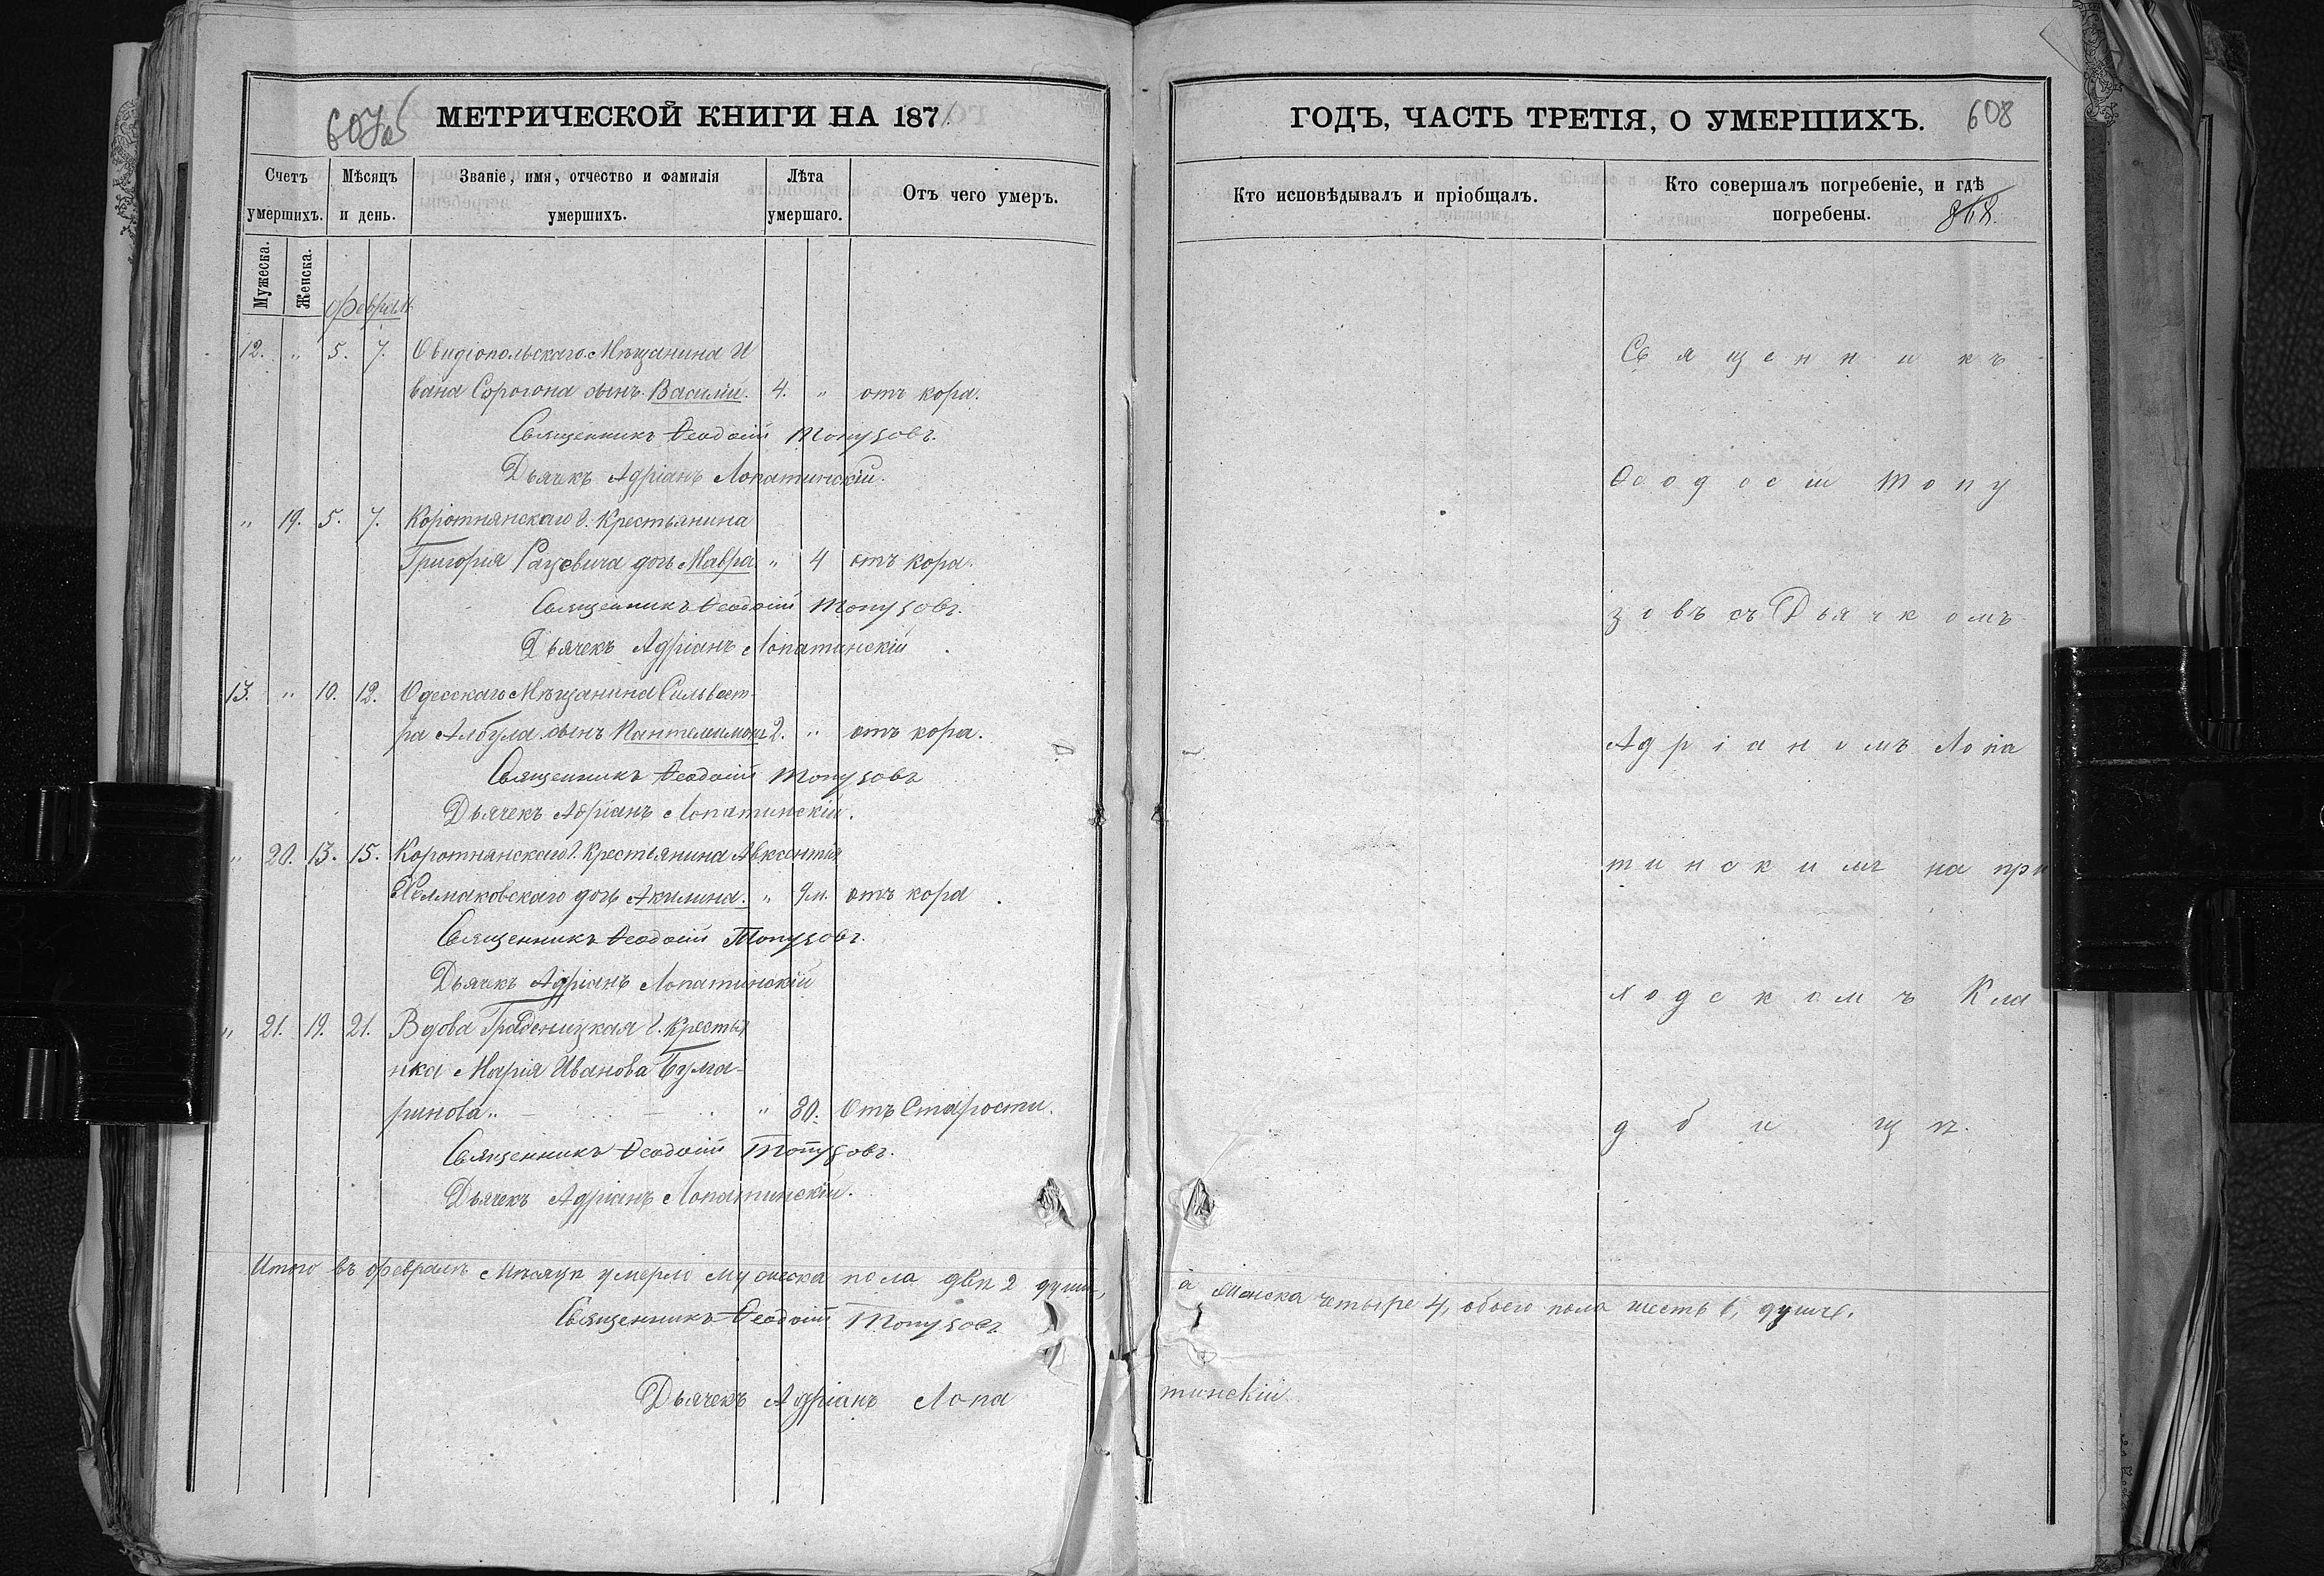 607об
МЕТРИЧЕСКОЙ КНИГИ НА 1871
Счетъ умершихъ.
Мѣсяцъ и день.
Званіе, имя, отчество и фамилія умершихъ.
Лѣта умершаго.
Отъ чего умеръ.
Мужеска.
Женска.
Февраль
12. " 5. 7. Овидіопольскаго Мѣщанина И
вана Сорогона сынъ Василій. 4. " отъ кора.
Священникъ Ѳеодосій Топузовъ.
Дьячекъ Адріанъ Лопатинскій.
" 19. 5. 7. Коротнянскаго О. Крестьянина
Григорія Рацевича дочь Мавра " 4 отъ кора.
Священникъ Ѳеодосій Топузовъ.
Дьячекъ Адріанъ Лопатинскій
13. " 10. 12. Одесскаго Мѣщанина Сильвест-
ра Албула сынъ Пантелеимонъ 2. " отъ кора.
Священникъ Ѳеодосій Топузовъ
Дьячекъ Адріанъ Лопатинскій.
" 20. 13. 15. Коротнянскаго О. Крестьянина Авксентія
дочь Акилина. " 9м. отъ кора
Священникъ Ѳеодосій Топузовъ.
Дьячекъ Адріанъ Лопатинскій
" 21. 19. 21. Вдова Граденицкая О. Крестья
нка Марія Иванова Булга-
ринова " " 80. Отъ Старости.
Священникъ Ѳеодосій Топузовъ.
Дьячекъ Адріанъ Лопатинскій.
Итого въ Февралѣ Мѣсяцѣ умерло мужеска пола двѣ 2 души,
Священникъ Ѳеодосій Топузовъ
Дьячекъ Адріанъ Лопа
ГОДЪ, ЧАСТЬ ТРЕТІЯ, О УМЕРШИХЪ.
608
Кто исповѣдывалъ и пріобщалъ.
Кто совершалъ погребеніе, и гдѣ погребены.
868.
Священникъ
Ѳеодосій Топу
зовъ съ Дьячкомъ
Адріаномъ Лопа
тинскимъ на при
ходскомъ Кла
дбищѣ.
а женска четыре 4, обоего пола шесть 6, душъ.
тинскій